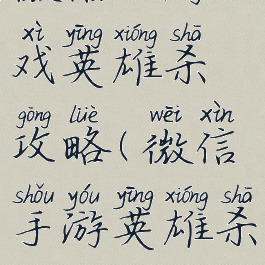 xì yīng xióng shā
戏英雄杀
gōng lüè wēi xìn
攻略(微信
shǒu yóu yīng xióng shā
手游英雄杀